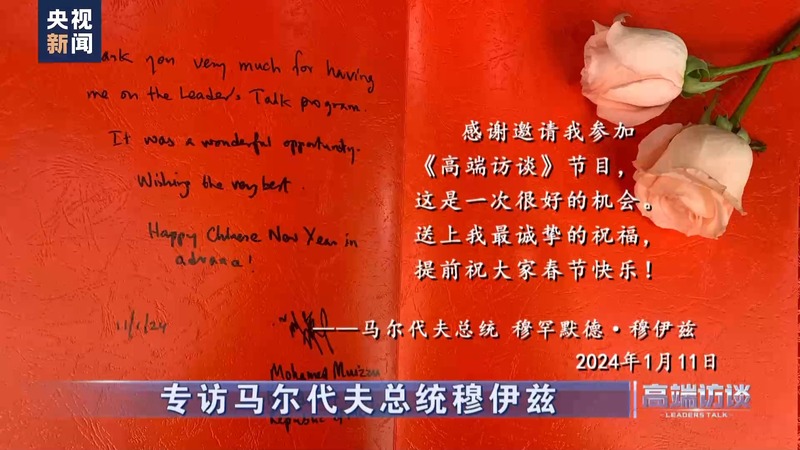 央视
新闻
Thank you very much for having
me on the Leader's Talk program.
It was a wonderful opportunity.
Wishing the very best.
Happy Chinese New Year in
advance!
11/1/24
Mohamed Muizzu
感谢邀请我参加
《高端访谈》节目，
这是一次很好的机会。
送上我最诚挚的祝福，
提前祝大家春节快乐！
——马尔代夫总统 穆罕默德·穆伊兹
2024年1月11日
专访马尔代夫总统穆伊兹
高端访谈
LEADERS TALK